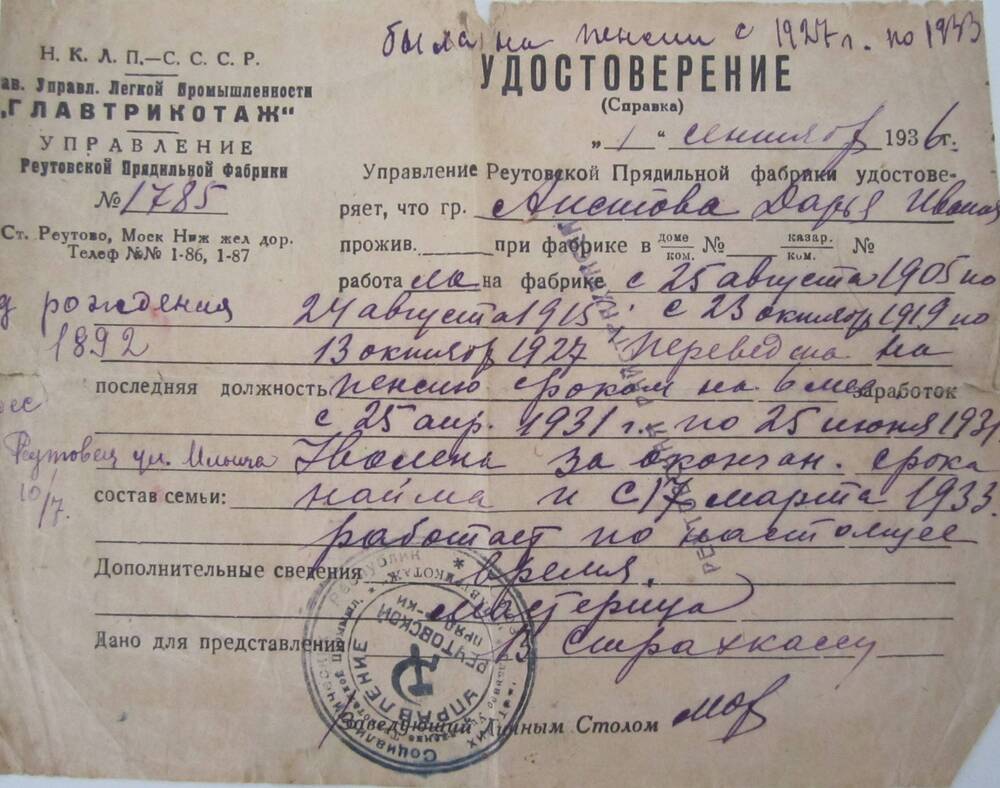 была на пенсии с 1927 г. по 1933
Н. К. Л. П.—С. С. С. Р.
ав. Управл. Легкой Промышленности
„ГЛАВТРИКОТАЖ“
УПРАВЛЕНИЕ
Реутовской Прядильной Фабрики
№ 1785
Ст. Реутово, Моск Ниж жел дор.
Телеф №№ 1-86, 1-87
УДОСТОВЕРЕНИЕ
(Справка)
„1“ сентября 1936 г.
Управление Реутовской Прядильной фабрики удостове-
ряет, что гр. Аистова Дарья Иванов
прожив. при фабрике в доме ком. № казар. ком. №
работала на фабрике с 25 августа 1905 по
24 августа 1915 с 23 октября 1919 по
13 октября 1927 Переведена на
последняя должность пенсию сроком на 6 мес. заработок
с 25 апр. 1931 г. по 25 июня 1931
Уволена за окончан. срока
состав семьи: найма и с 17 марта 1933.
работает по настоящее
Дополнительные сведения время.
мастерица
Дано для представления В Страхкассу
Заведующий Личным Столом
д рождения
1892
рес
Реутовец ул. Ильича
10/7.
УПРАВЛЕНИЕ
РЕУТОВСКОЙ
ПРЯД. Ф-КИ